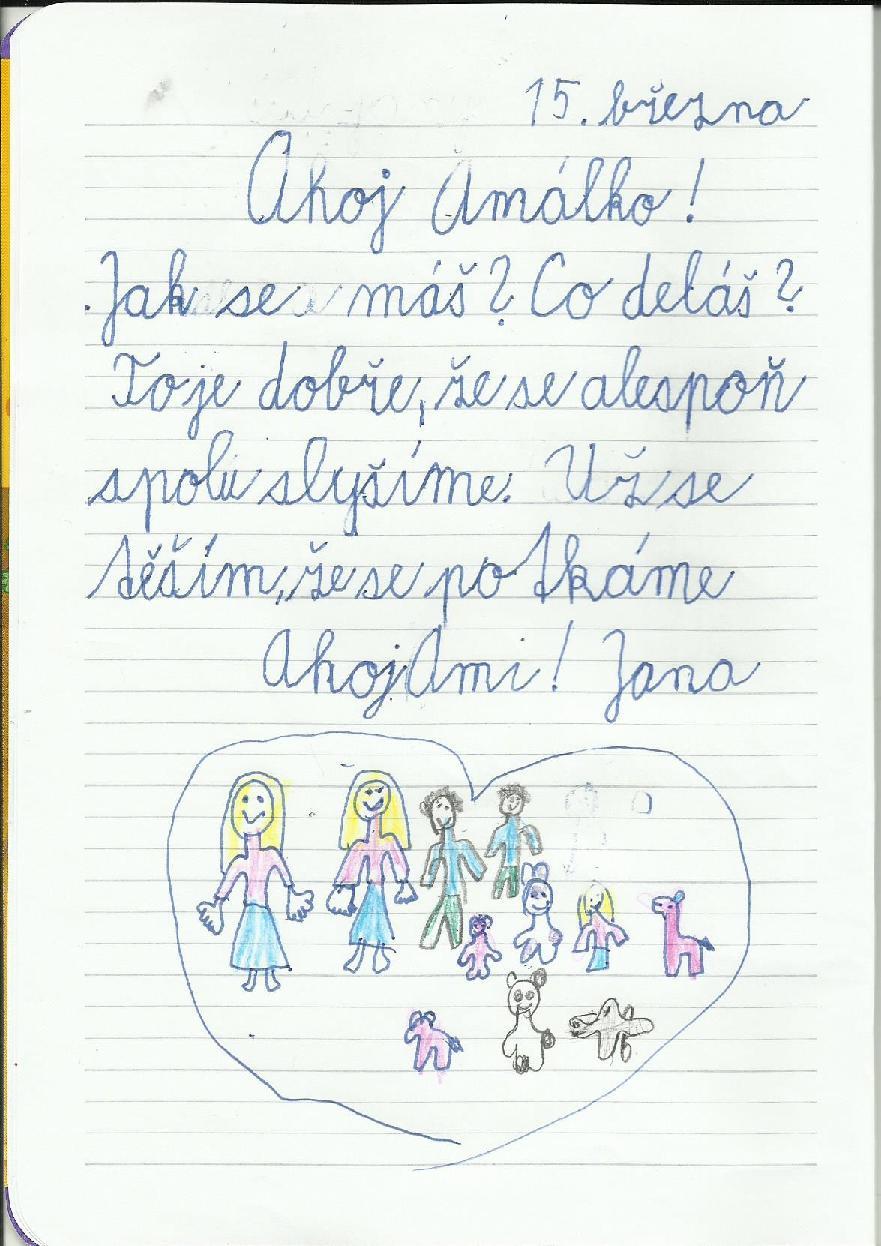 15. března
Ahoj Amálko!
Jak se máš? Co deláš?
To je dobře, že se alespoň
spolu slyšíme. Už se
těším, že se potkáme
Ahoj Ami! Jana